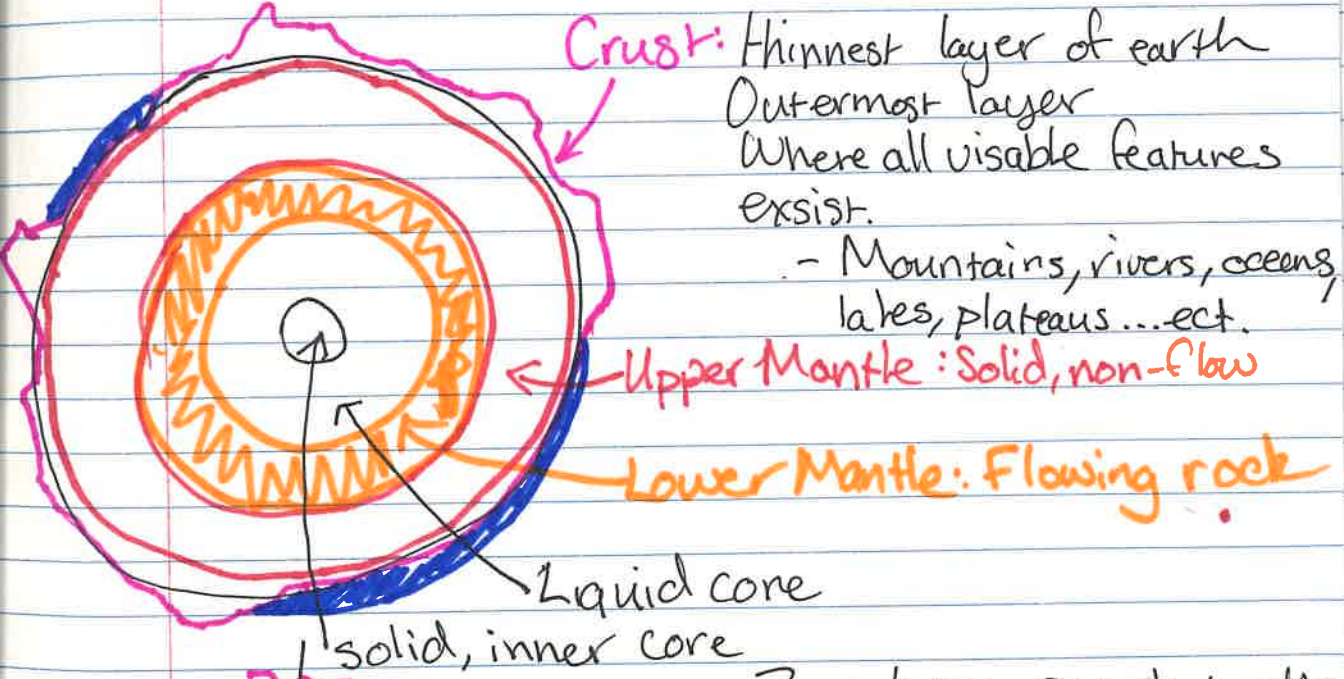 Crust: thinnest layer of earth
Outermost layer
Where all visable features
exsist.
- Mountains, rivers, oceans,
lakes, plateaus...ect.
Upper Mantle: Solid, non-flow
Lower Mantle: Flowing rock
Liquid core
solid, inner core